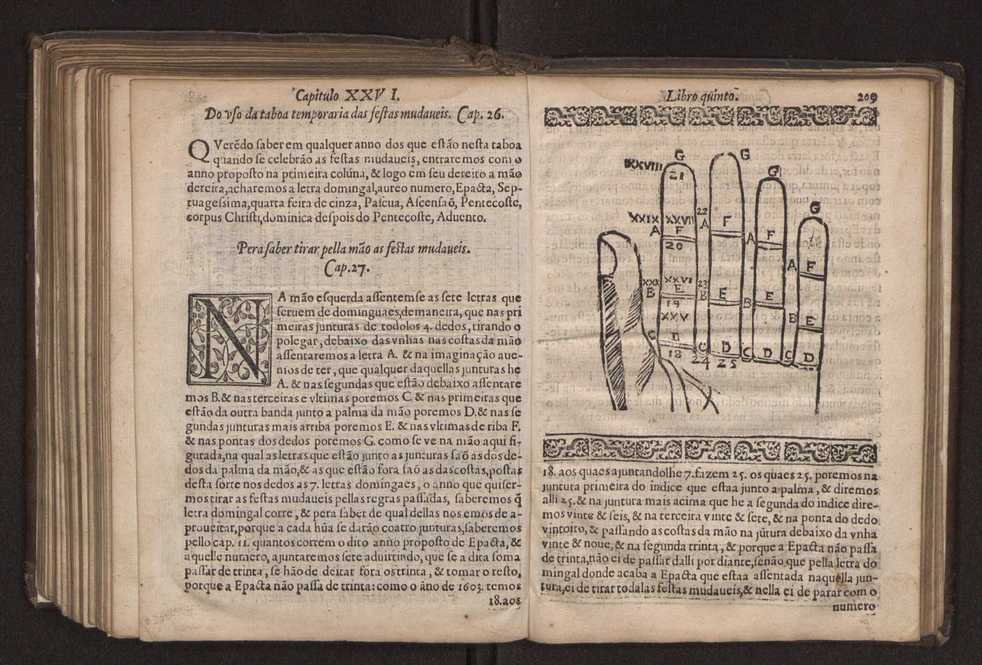 Capitulo XXVI.
Do vso da taboa temporaria das festas mudaueis. Cap. 26.
QVerẽdo saber em qualquer anno dos que estão nesta taboa
quando se celebrão as festas mudaueis, entraremos com o
anno proposto na primeira colũna, & logo em seu dereito a mão
dereita, acharemos a letra domingal, aureo numero, Epacta, Sep-
tuagessima, quarta feira de cinza, Pascua, Ascensaõ, Pentecoste,
corpus Christi, dominica despois do Pentecoste, Aduento.
Pera saber tirar pella mão as festas mudaueis.
Cap. 27.
NA mão esquerda assentemse as sete letras que
seruem de domingaes, demaneira, que nas pri
meiras junturas de todolos 4. dedos, tirando o
polegar, debaixo das vnhas nas costas da mão
assentaremos a letra A. & na imaginação aue-
mos de ter, que qualquer daquellas junturas he
A. & nas segundas que estão debaixo assentare
mos B. & nas terceiras e vltimas poremos C. & nas primeiras que
estão da outra banda junto a palma da mão poremos D. & nas se
gundas junturas mais arriba poremos E. & nas vltimas de riba F.
& nas pontas dos dedos poremos G. como se ve na mão aqui fi-
gurada, na qual as letras que estão junto as junturas saõ as dos de-
dos da palma da mão, & as que estão fora saõ as das costas, postas
desta sorte nos dedos as 7. letras domingaes, o anno que quiser-
mos tirar as festas mudaueis pellas regras passadas, saberemos q̃
letra domingal corre, & pera saber de qual dellas nos emos de a-
proueitar, porque a cada hũa se darão coatro junturas, saberemos
pello cap. 11. quantos correm o dito anno proposto de Epacta, &
aquelle numero, ajuntaremos sete aduirtindo, que se a dita soma
passar de trinta, se hão de deitar fora os trinta, & tomar o resto,
porque a Epacta não passa de trinta: como o ãno de 1603. temos
18. aos
Libro quinto. 209
G G G G
IXXVIII 21
XXIX XXVII 22
A F A F A F A F
20
XXX XXVI 23
B E B E B E B E
19
XXV
C D C D C D C D
18 24 25
18. aos quaes ajuntandolhe 7. fazem 25. os quaes 25. poremos na
juntura primeira do indice que estaa junto a palma, & diremos
alli 25. & na juntura mais acima que he a segunda do indice dire-
mos vinte & seis, & na terceira vinte & sete, & na ponta do dedo
vintoito, & passando as costas da mão na jũtura debaixo da vnha
vinte & noue, & na segunda trinta, & porque a Epacta não passa
de trinta, não ei de passar dalli por diante, senão que pella letra do
mingal donde acaba a Epacta que estaa assentada naquella jun-
tura, ei de tirar todalas festas mudaueis, & nella ei de parar com o
numero